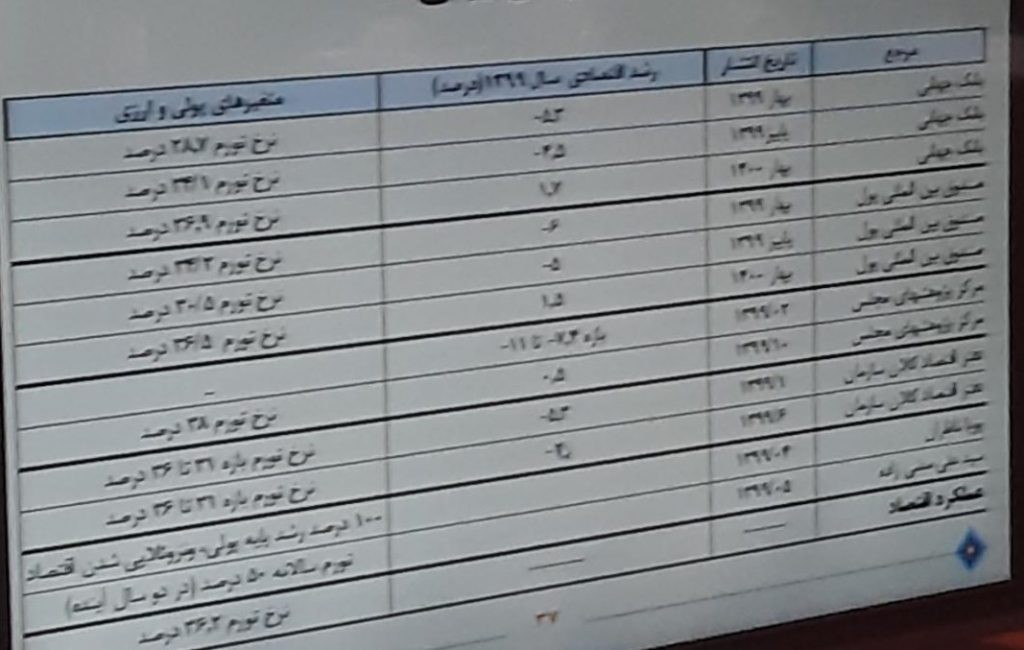 مرجع تاریخ انتشار رشد اقتصادی سال ۱۳۹۹ (درصد) متغیرهای پولی و ارزی
بانک جهانی بهار ۱۳۹۹ -۵.۳ نرخ تورم درصد
بانک جهانی پاییز ۱۳۹۹ -۴.۵ نرخ تورم درصد
بانک جهانی بهار ۱۴۰۰ ۱.۷ نرخ تورم درصد
صندوق بین المللی پول بهار ۱۳۹۹ -۶ نرخ تورم ۳۴/۲ درصد
صندوق بین المللی پول پاییز ۱۳۹۹ -۵ نرخ تورم ۳۰/۵ درصد
صندوق بین المللی پول بهار ۱۴۰۰ ۱.۵ نرخ تورم ۳۶/۵ درصد
مرکز پژوهشهای مجلس ۱۳۹۹/۰۲ بازه -۷.۴ تا -۱۱ –
مرکز پژوهشهای مجلس ۱۳۹۹/۱۰ ۰.۵ نرخ تورم ۳۸ درصد
دفتر اقتصاد کلان سازمان ۱۳۹۹/۱ -۵.۳ نرخ تورم بازه ۳۱ تا ۳۶ درصد
دفتر اقتصاد کلان سازمان ۱۳۹۹/۶ نرخ تورم بازه ۳۱ تا ۳۶ درصد
پویا ناظران ۱۳۹۹/۰۴ ۱۰۰ درصد رشد پایه پولی، ونزوئلایی شدن اقتصاد
سید علی مدنی زاده ۱۳۹۹/۰۵ تورم سالانه ۵۰ درصد (در دو سال آینده)
عملکرد اقتصاد —— —— نرخ تورم ۳۶.۲ درصد
۳۷